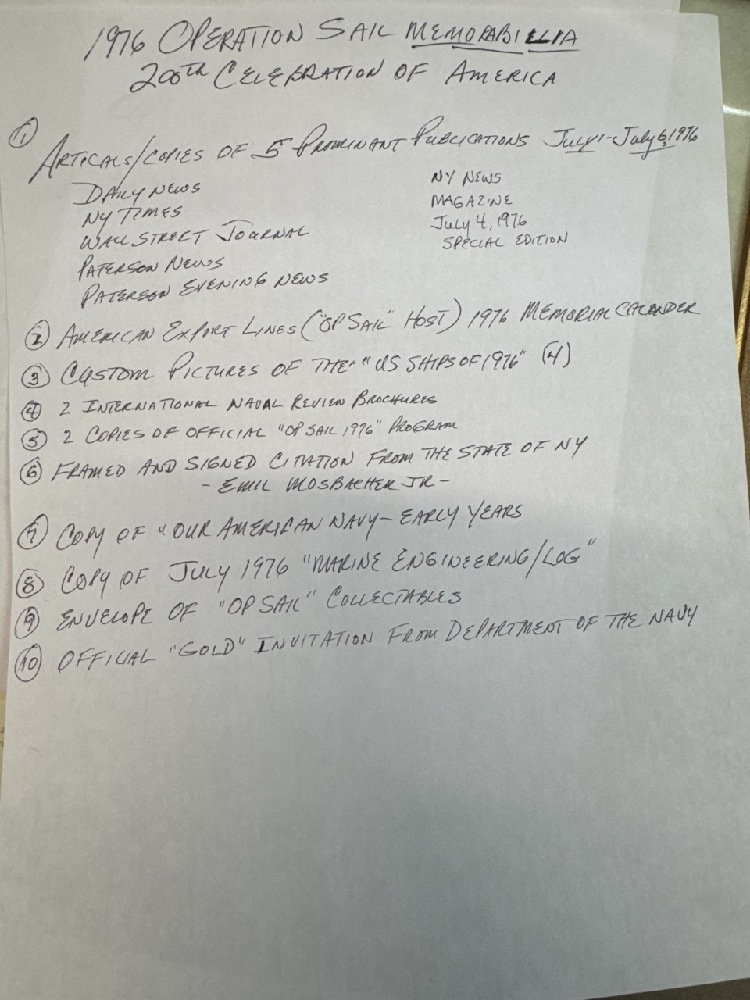 1976 OPERATION SAIL MEMORABILLIA
200TH CELEBRATION OF AMERICA
① ARTICALS/COPIES OF 5 PROMINANT PUBLICATIONS July 1 - July 6, 1976
DAILY NEWS
NY TIMES
WALL STREET JOURNAL
PATERSON NEWS
PATERSON EVENING NEWS
NY NEWS
MAGAZINE
July 4, 1976
SPECIAL EDITION
② AMERICAN EXPORT LINES ("OP SAIL" HOST) 1976 MEMORIAL CALENDER
③ CUSTOM PICTURES OF THE "US SHIPS OF 1976" (4)
④ 2 INTERNATIONAL NAVAL REVIEW BROCHURES
⑤ 2 COPIES OF OFFICIAL "OP SAIL 1976" PROGRAM
⑥ FRAMED AND SIGNED CITATION FROM THE STATE OF NY
- EMIL MOSBACHER JR -
⑦ COPY OF "OUR AMERICAN NAVY - EARLY YEARS
⑧ COPY OF JULY 1976 "MARINE ENGINEERING/LOG"
⑨ ENVELOPE OF "OP SAIL" COLLECTABLES
⑩ OFFICIAL "GOLD" INVITATION FROM DEPARTMENT OF THE NAVY